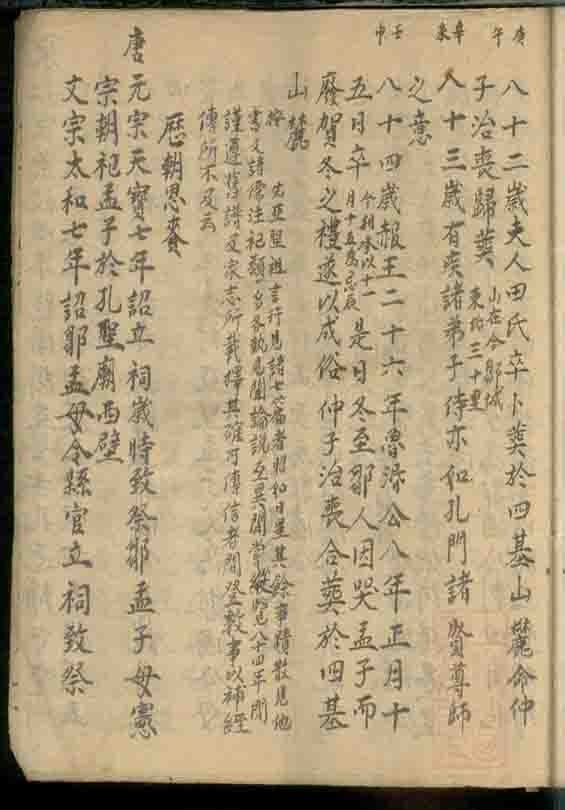 庚午
八十二歲夫人田氏卒卜葬於四基山麓命仲
子治喪歸葬山在今鄒城東北三十里
辛未
八十三歲有疾諸弟子侍亦如孔門諸賢尊師
之意
壬申
八十四歲赧王二十六年魯湣公八年正月十
五日卒今刊本以十一月十五為忌辰是日冬至鄒人因哭孟子而
廢賀冬之禮遂以成俗仲子治喪合葬於四基
山麓
按先亞聖祖言行見諸七篇者昭如日星其餘事蹟散見他
書又諸儒注記類多各執見聞論說互異間嘗縱覽八十四年間
謹遵舊譜及家志所載擇其確可傳信者閒登數事以補經
傳所不及云
歷朝恩賚
唐元宗天寶七年詔立祠歲時致祭鄒孟子母憲
宗朝祀孟子於孔聖廟西壁
文宗太和七年詔鄒孟母令縣官立祠致祭